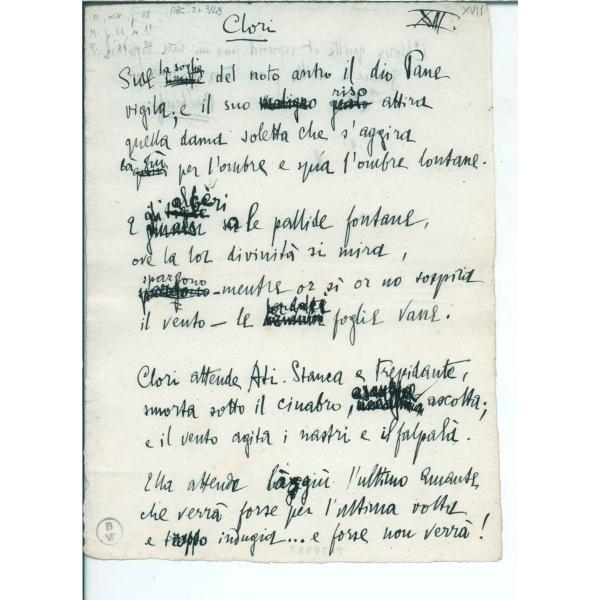 ARC. 21 3/48
XVII
Clori
XIII.
Sulla soglia del noto antro il dio Pane
vigila; e il suo maligno riso attira
quella dama soletta che s'aggira
laggiù per l'ombre e spia l'ombre lontane.
E gli alberi su le pallide fontane,
ove la lor divinità si mira,
spargono – mentre or sì or no sospira
il vento – le foglie vane.
Clori attende Ati. Stanca e trepidante,
smorta sotto il cinabro, ascolta;
e il vento agita i nastri e il falpalà.
Ella attende laggiù l'ultimo amante
che verrà forse per l'ultima volta
e troppo indugia... e forse non verrà!